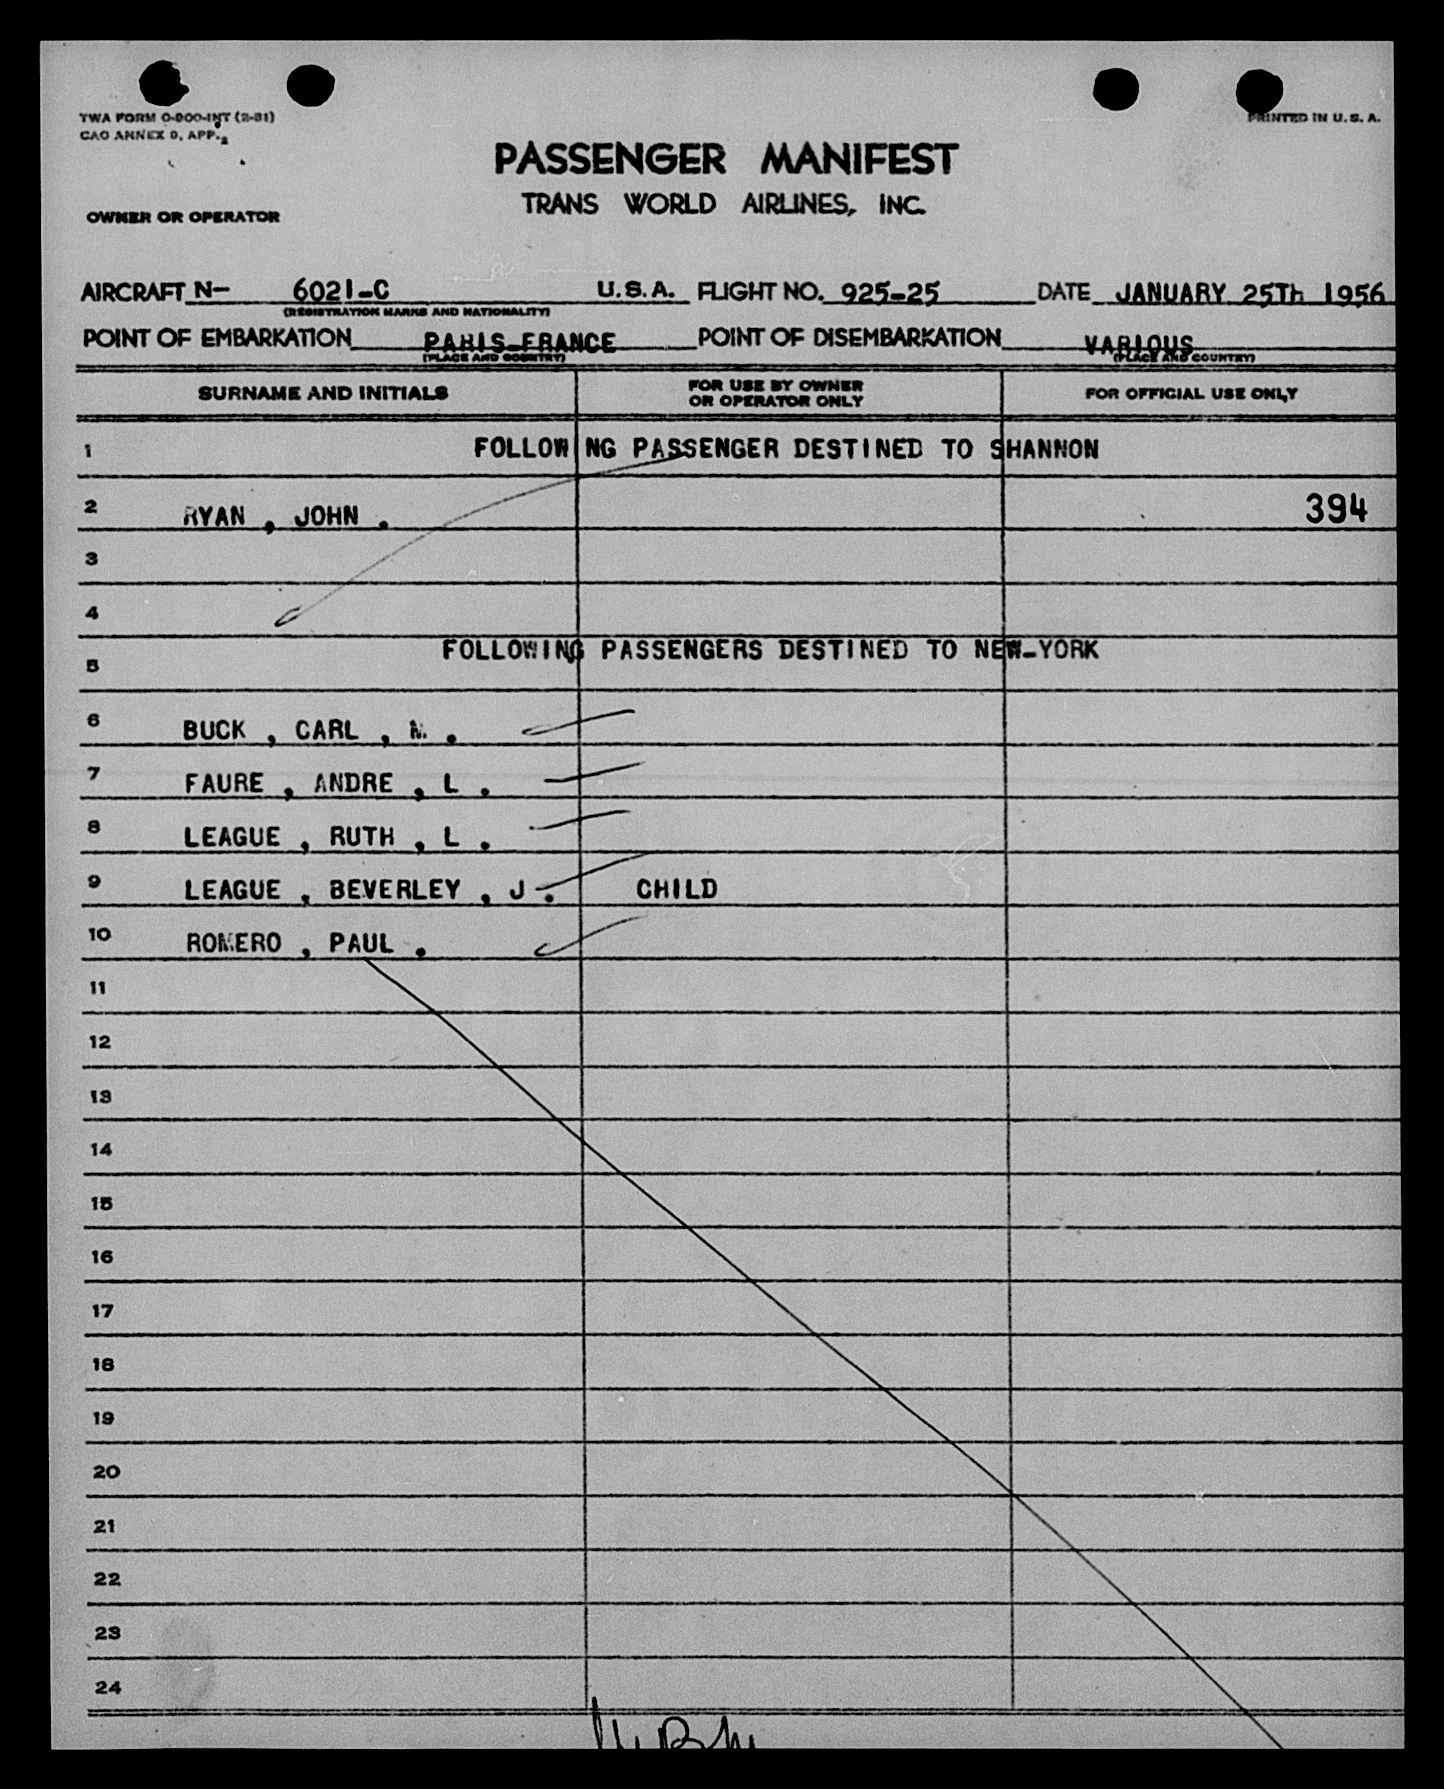 TWA FORM O-900-INT (2-51)
PRINTED IN U. S. A.
CAO ANNEX 9, APP. 2
PASSENGER MANIFEST
TRANS WORLD AIRLINES, INC.
OWNER OR OPERATOR
AIRCRAFT N- 6021-C U.S.A. FLIGHT NO. 925-25 DATE JANUARY 25Th 1956
(REGISTRATION MARKS AND NATIONALITY)
POINT OF EMBARKATION PARIS-FRANCE POINT OF DISEMBARKATION VARIOUS
(PLACE AND COUNTRY) (PLACE AND COUNTRY)
SURNAME AND INITIALS FOR USE BY OWNER OR OPERATOR ONLY FOR OFFICIAL USE ONLY
1 FOLLOWING PASSENGER DESTINED TO SHANNON
2 RYAN , JOHN . 394
3
4
5 FOLLOWING PASSENGERS DESTINED TO NEW-YORK
6 BUCK , CARL , M .
7 FAURE , ANDRE , L .
8 LEAGUE , RUTH , L .
9 LEAGUE , BEVERLEY , J . CHILD
10 ROMERO , PAUL .
11
12
13
14
15
16
17
18
19
20
21
22
23
24